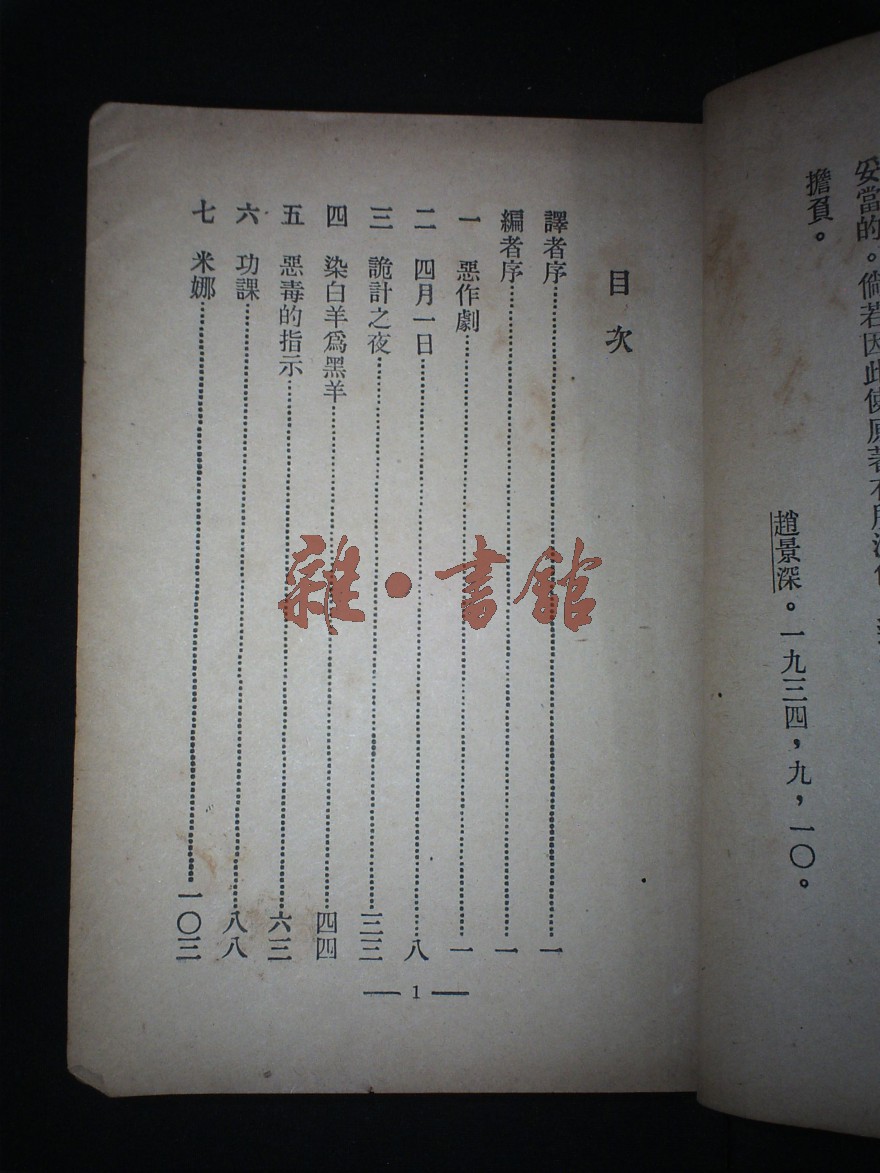 妥當的。倘若因此使原著有所
擔負。
趙景深。一九三四,九,一〇。
目次
譯者序……一
編者序……一
一 惡作劇……一
二 四月一日……八
三 詭計之夜……三三
四 染白羊爲黑羊……四四
五 惡毒的指示……六三
六 功課……八八
七 米娜……一〇三
— 1 —
雜·書館